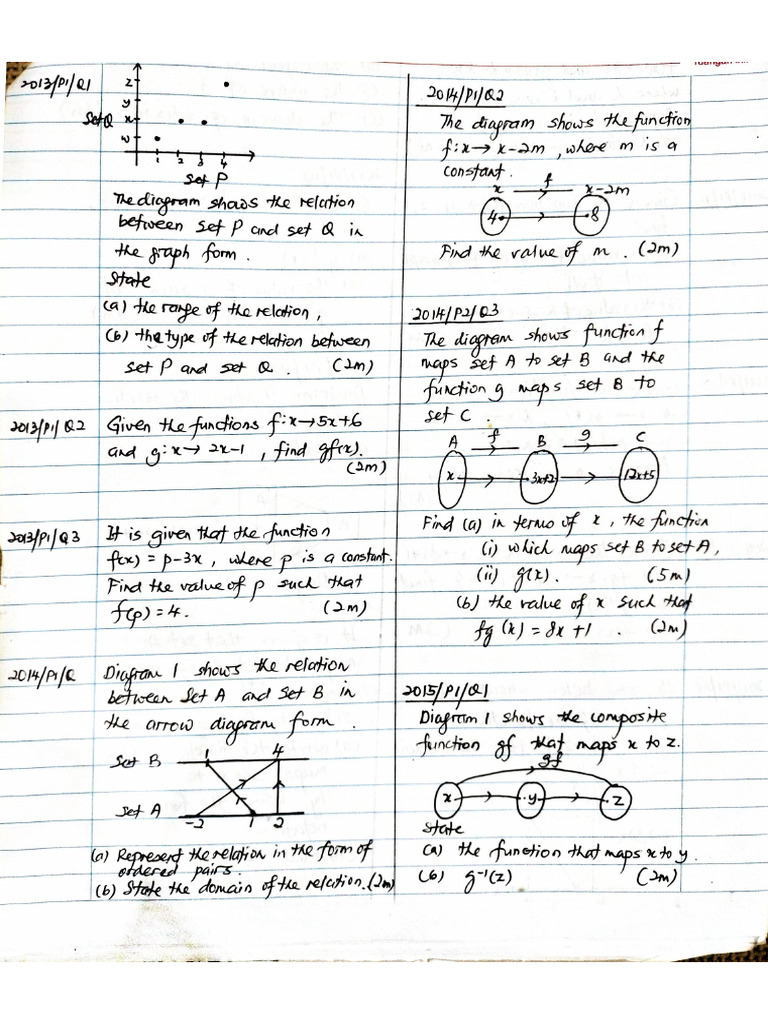 2013/P1/Q1
z
y
Set Q x
w
1 2 3 4
Set P
The diagram shows the relation
between set P and set Q in
the graph form.
State
(a) the range of the relation,
(b) the type of the relation between
set P and set Q. (2m)
2013/P1/Q2 Given the functions f:x→5x+6
and g:x→ 2x-1 , find gf(x).
(2m)
2013/P1/Q3 It is given that the function
f(x) = p-3x, where p is a constant.
Find the value of p such that
f(p)=4. (2m)
2014/P1/Q Diagram 1 shows the relation
between Set A and Set B in
the arrow diagram form.
Set B 1 4
Set A
-2 1 2
(a) Represent the relation in the form of
ordered pairs.
(b) State the domain of the relation. (2m)
2014/P1/Q2
The diagram shows the function
f:x→ x-2m , where m is a
constant.
x f x-2m
4 8
Find the value of m. (2m)
2014/P2/Q3
The diagram shows function f
maps set A to set B and the
function g maps set B to
set C.
A f B g C
x 3x+2 12x+5
Find (a) in terms of x, the function
(i) which maps set B to set A,
(ii) g(x). (5m)
(b) the value of x such that
fg(x) = 8x+1 . (2m)
2015/P1/Q1
Diagram 1 shows the composite
function gf that maps x to z.
gf
x y z
State
(a) the function that maps x to y.
(b) g⁻¹(z) (2m)